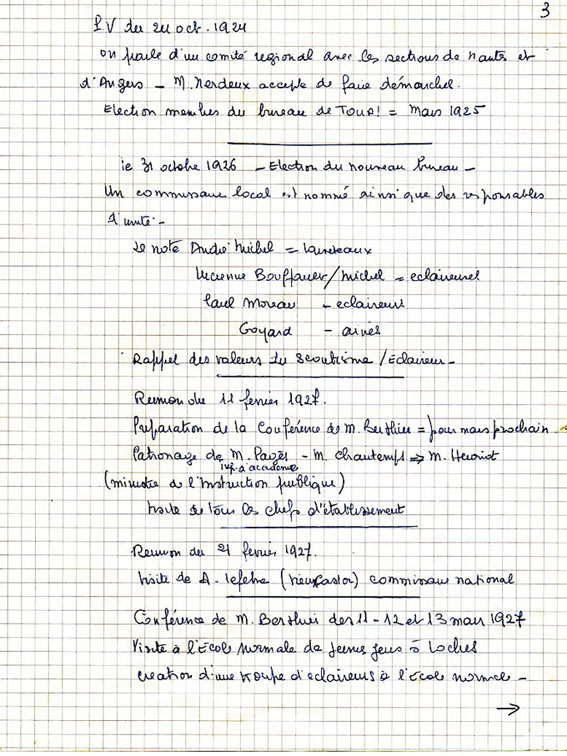 3
P.V du 24 oct. 1924
on parle d'un comité régional avec les sections de Nantes et
d'Angers - M. Nerdeux accepte de faire démarches.
Election membres du bureau de Tours = Mars 1925
le 31 octobre 1926 - Election du nouveau bureau -
Un commissaire local est nommé ainsi que des responsables
d'unité -
Je note André Michel = louveteaux
Lucienne Bouffanet/Michel = eclaireuses
Paul Moreau - eclaireurs
Goyard - ainés
Rappel des valeurs du Scoutisme / Eclaireur -
Reunion du 11 fevrier 1927.
Préparation de la Conférence de M. Berthier = pour mars prochain
Patronage de M. Pagès - M. Chautemps => M. Herriot
insp. d'académie
(ministre de l'Instruction publique)
Visite de tous les chefs d'établissement
Reunion du 21 fevrier 1927.
Visite de A. Lefebre (Vieux Castor) commissaire national
Conférence de M. Berthier des 11 - 12 et 13 mars 1927
Visite à l'Ecole normale de jeunes gens à Loches
creation d'une troupe d'eclaireurs à l'école normale -
→